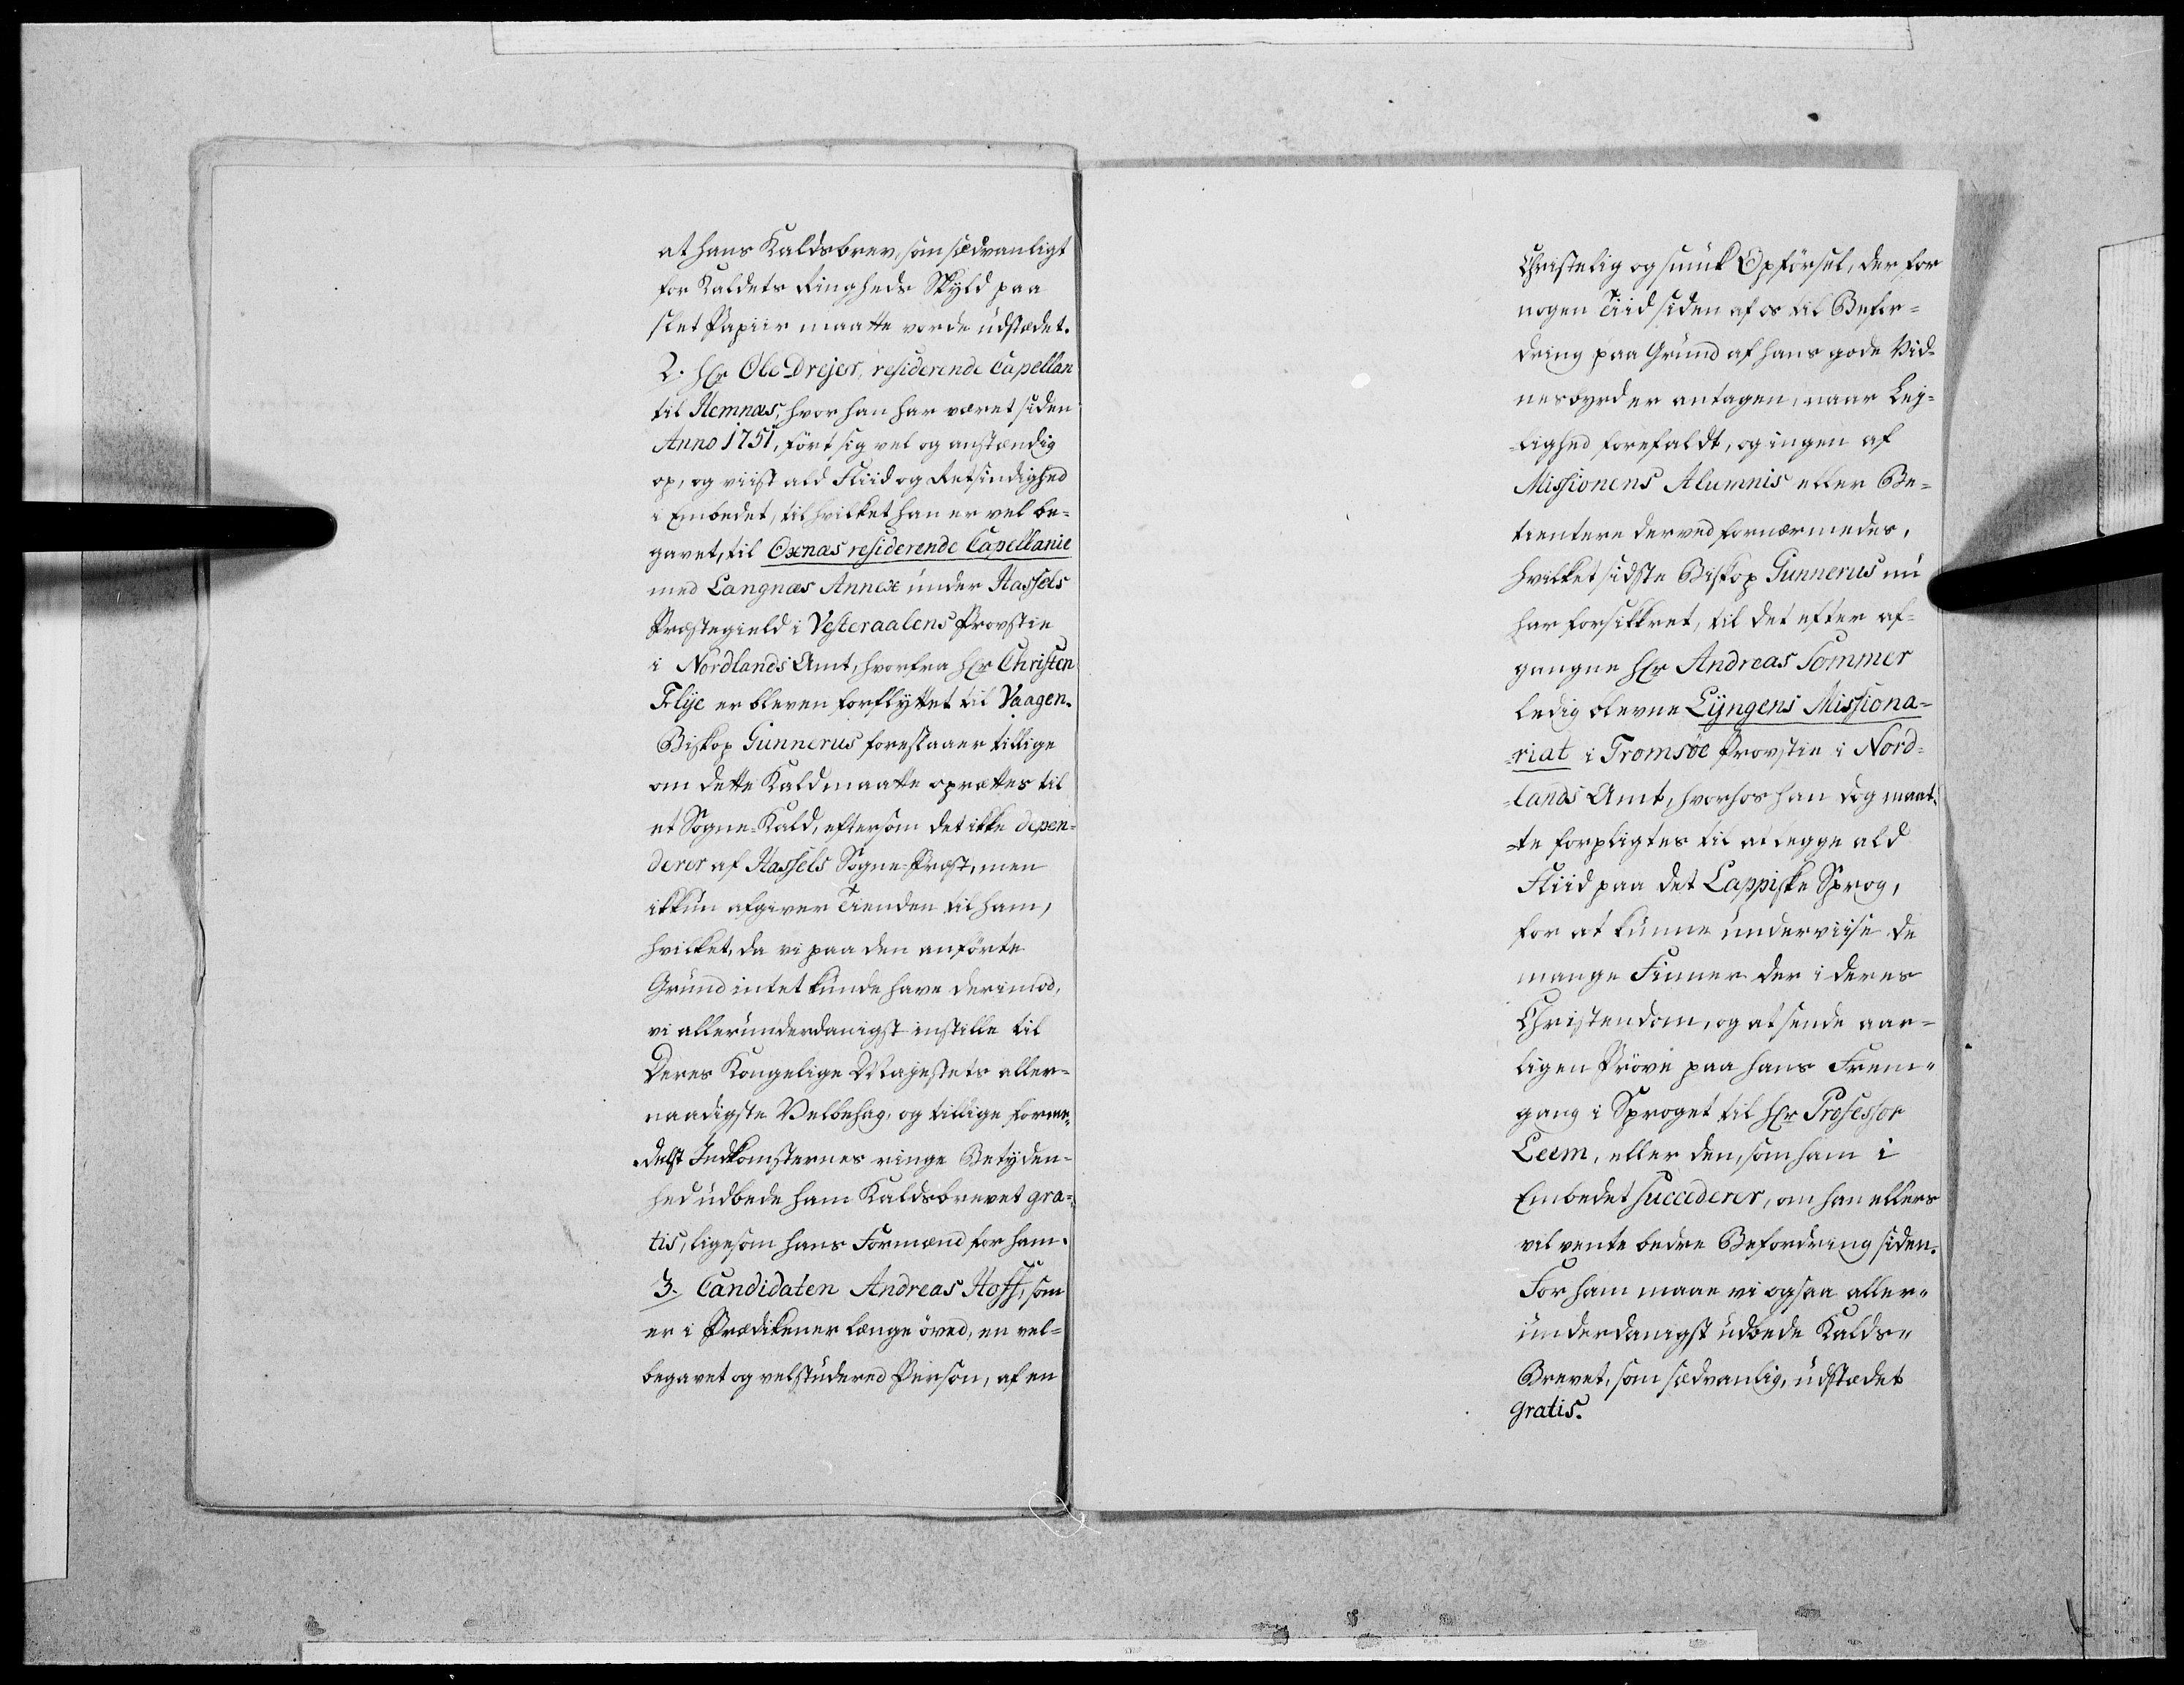 at hans Kaldsbrev, som sædvanligt
for Kaldets Ringheds Skyld paa
slet Papiir maatte vorde udstædet.
2. Hr Ole Drejer, residerende Capellan
til Nemnæs, hvor han har været siden
Anno 1751, ført sig vel og anstændig
op, og viist ald Fliid og Retsindighed
i Embedet, til hvilket han er vel be-
gavet, til Oxnæs residerende Capellanie
med Langnæs Annex under Hassels
Præstegield i Vesteraalens Provstie
i Nordlands Amt, hvorfra Hr Christen
Flye er bleven forflyttet til Vaagen.
Biskop Gunnerus forestaaer tillige
om dette Kald maatte oprættes til
et Sogne-Kald, eftersom det ikke depen-
derer af Hassels Sogne-Præst, men
ikkun afgiver Tienden til ham,
hvilket, da vi paa den anførte
Grund intet kunde have derimod,
vi allerunderdanigst instille til
Deres Kongelige Majestets aller-
naadigste Velbehag, og tillige forme-
delst Indkomsternes ringe Betyden-
hed udbede ham Kaldsbrevet gra-
tis, ligesom hans Formænd for ham.
3. Candidaten Andreas Hoff, som
er i Prædikener længe øved, en vel-
begavet og velstudered Person, af en
Christelig og smuk Opførsel, der for
nogen Tiid siden af os til Befor-
dring paa Grund af hans gode Vid-
nesbyrd er antagen, naar Lej-
lighed forefaldt, og ingen af
Missionens Alumnis eller Be-
tientere derved fornærmedes,
hvilket sidste Biskop Gunnerus nu
har forsikkret, til det efter af-
gangne Hr Andreas Sommer
ledig blevne Lyngens Missiona-
riat i Tromsøe Provstie i Nord-
lands Amt, hvorhos han dog maat-
te forpligtes til at legge ald
Fliid paa det Lappiske Sprog,
for at kunne underviise de
mange Finner der i deres
Christendom, og at sende aar-
ligen Prøve paa hans Frem-
gang i Sproget til Hr Professor
Leem, eller den, som ham i
Embedet succederer, om han ellers
vil vente bedre Befordring siden.
For ham maae vi ogsaa aller-
underdanigst udbede Kalds-
Brevet, som sædvanlig, udstædet
gratis.